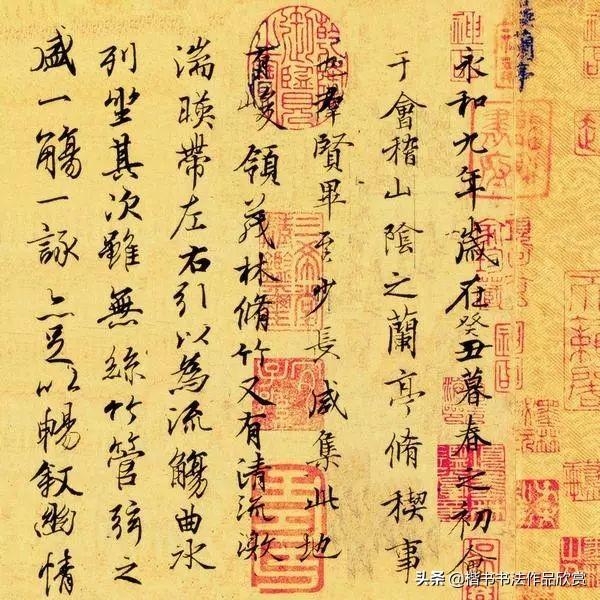 永和九年歲在癸丑暮春之初會
于會稽山陰之蘭亭脩稧事
也羣賢畢至少長咸集此地
有崇山峻領茂林脩竹又有清流激
湍暎帶左右引以為流觴曲水
列坐其次雖無絲竹管弦之
盛一觴一詠亦足以暢敘幽情
头条 @楷书书法作品欣赏